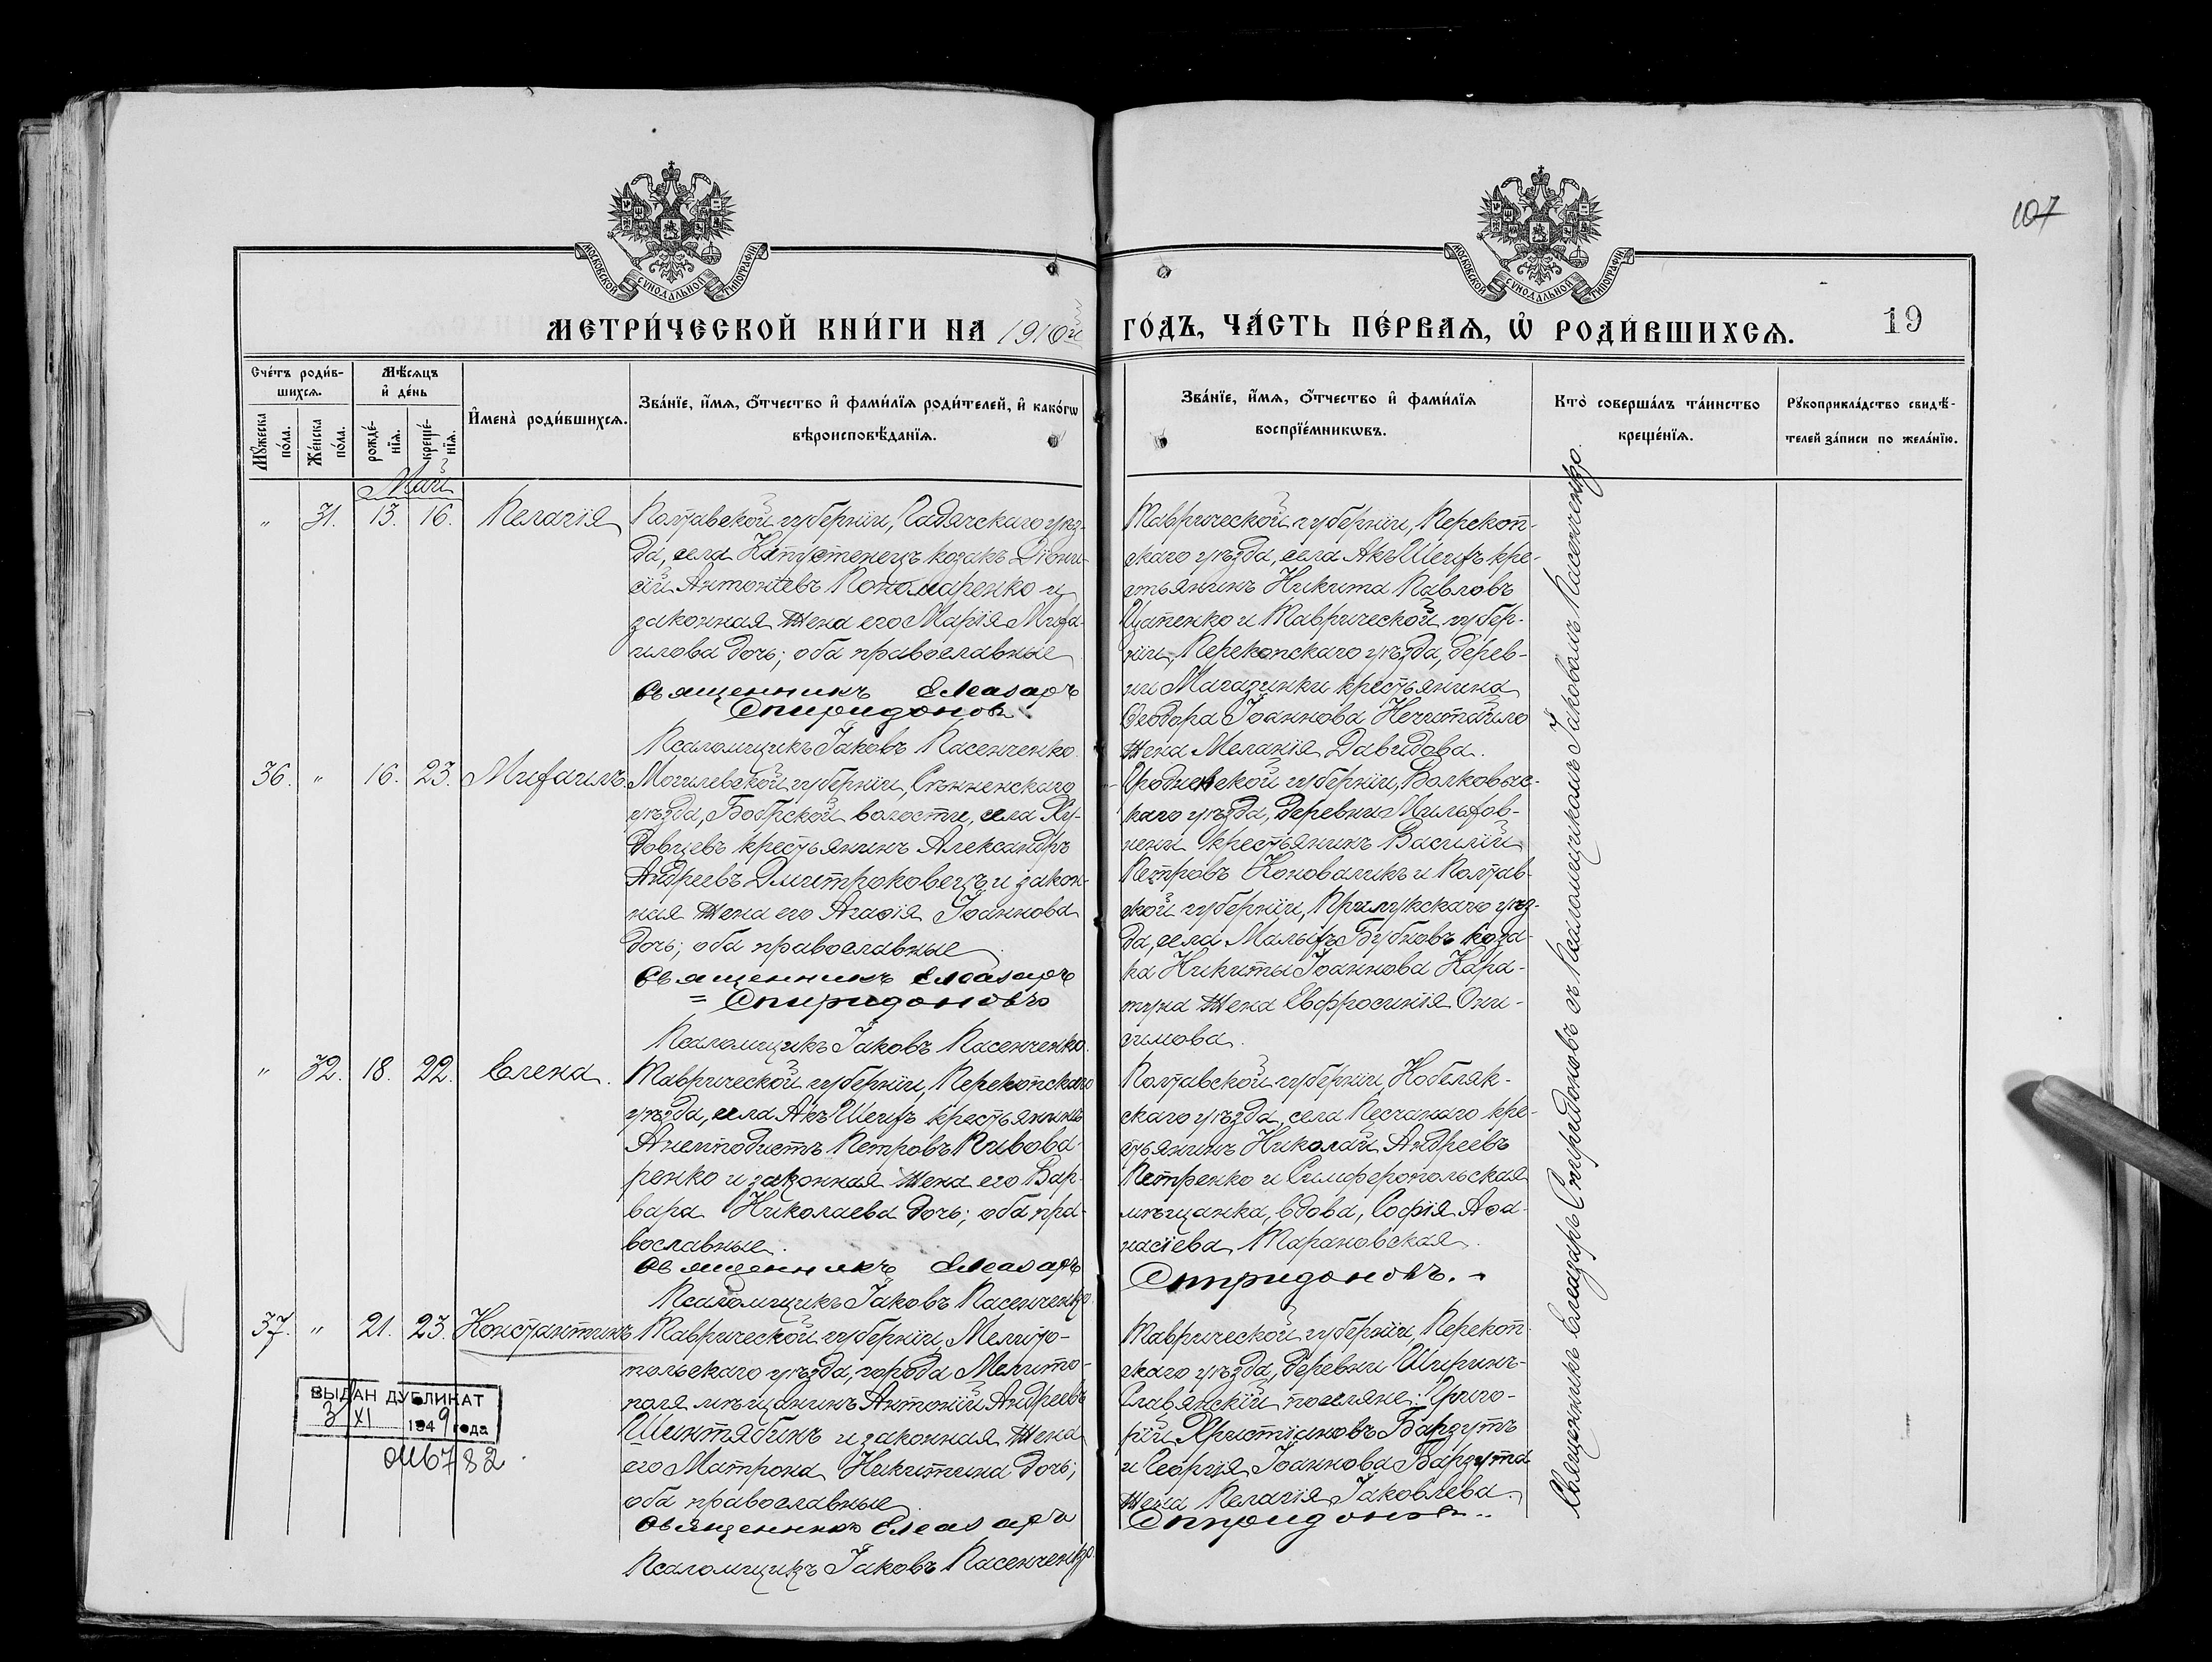 107
МОСКОВСКОЙ СѴНОДАЛЬНОЙ ТИПОГРАФІИ
МОСКОВСКОЙ СѴНОДАЛЬНОЙ ТИПОГРАФІИ
МЕТРИ́ЧЕСКОЙ КНИ́ГИ НА 1910й ГО́ДЪ, ЧА́СТЬ ПЕ́РВАѦ, Ѽ РОДИ́ВШИХСѦ.
19
Сче́тъ роди́в-
шихсѧ.
Мꙋ́жеска по́ла.
Же́нска по́ла.
Мѣ́сѧцъ
и҆ де́нь
рожде́-
нїѧ.
креще́-
нїѧ.
И҆мена̀ роди́вшихсѧ.
Зва́нїе, и҆́мѧ, ѻ҆́тчество и҆ фами́лїѧ роди́телей, и҆ како́гѡ
вѣроисповѣ́данїѧ.
Зва́нїе, и҆́мѧ, ѻ҆́тчество и҆ фами́лїѧ
воспрїе́мникѡвъ.
Кто̀ соверша́лъ та́инство
креще́нїѧ.
Рꙋкоприкла́дство свидѣ́-
телей за́писи по жела́нїю.
Май
" 31. 13. 16. Пелагія
Полтавской губерніи, Гадячскаго уѣз-
да, села Капустенецъ козакъ Діони-
сій Антоніевъ Пономаренко и
законная жена его Марія Миха-
илова дочь; оба православные
Священникъ Елеазаръ
Спиридоновъ
Псаломщикъ Іаковъ Пасенченко
Таврической губерніи, Перекоп-
скаго уѣзда, села Акъ-Шеихъ кре-
стьянинъ Никита Павловъ
Цапенко и Таврической губер-
ніи, Перекопскаго уѣзда, дерев-
ни Магазинки крестьянина
Ѳеодора Іоаннова Нечитайло
жена Меланія Давидова.
36. " 16. 23. Михаилъ
Могилевской губерніи, Сѣнненскаго
уѣзда, Бобрской волости, села Ху-
довцевъ крестьянинъ Александръ
Андреевъ Дмитроковецъ и закон-
ная жена его Агаѳія Іоаннова
дочь; оба православные
Священникъ Елеазаръ
= Спиридоновъ
Псаломщикъ Іаковъ Пасенченко.
Гродненской губерніи, Волковыс-
каго уѣзда, деревни Мильхов-
нени крестьянинъ Василій
Петровъ Коноваликъ и Полтав-
ской губерніи, Прилукскаго уѣз-
да, села Малыхъ Бубновъ коза-
ка Никиты Іоаннова Кара-
туна жена Евфросинія Они-
симова.
" 32. 18. 22. Елена.
Таврической губерніи, Перекопскаго
уѣзда, села Акъ-Шеихъ крестьянинъ
Анемподистъ Петровъ Пивова-
ренко и законная жена его Вар-
вара Николаева дочь; оба пра-
вославные.
Священникъ Елеазаръ
Псаломщикъ Іаковъ Пасенченко.
Полтавской губерніи, Кобеляк-
скаго уѣзда, села Песчанаго кре-
стьянинъ Николай Андреевъ
Петренко и Симферопольская
мѣщанка, вдова, Софія Аѳа-
насіева Тарановская.
Спиридоновъ.
37. " 21. 23. Константинъ
Таврической губерніи, Мелито-
польскаго уѣзда, города Мелито-
поля мѣщанинъ Антоній Андреевъ
Шинтябинъ и законная жена
его Матрона Никитина дочь;
оба православные
Священникъ Елеазаръ
Псаломщикъ Іаковъ Пасенченко.
Таврической губерніи, Перекоп-
скаго уѣзда, деревни Ширинъ-
Славянскій поселяне: Григо-
рій Христіановъ Барзутъ
и Георгія Іоаннова Барзута
жена Пелагія Іаковлева.
Спиридоновъ.
ВЫДАН ДУБЛИКАТ
3 XI 1949 года
046782
Священникъ Елеазаръ Спиридоновъ съ Псаломщикомъ Іаковомъ Пасенченко.